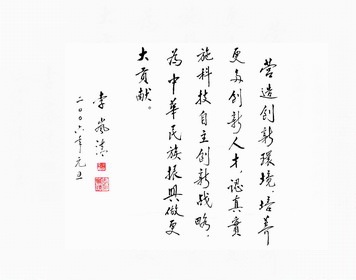 营造创新環境,培養
更多创新人才,認真實
施科技自主创新战略,
為中華民族振興做更
大貢献。
李嵐清
二〇〇六年元旦